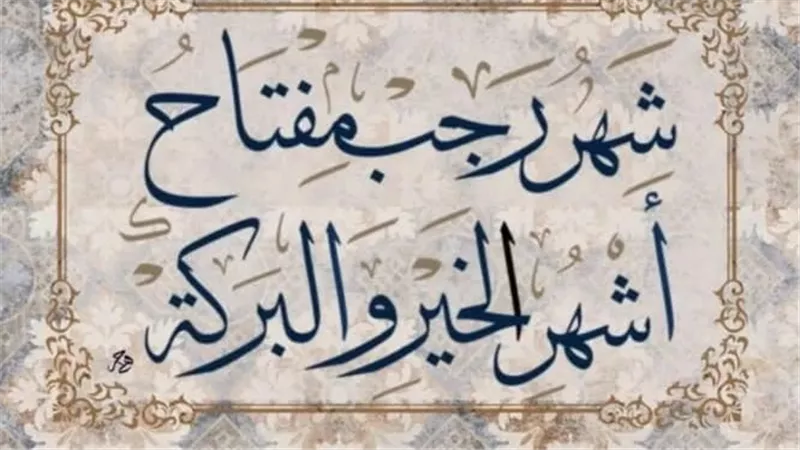 شَهْرُ رَجَبْ مِفْتَاحُ
أَشْهُرِ الخَيْرِ وَالبَرَكَة